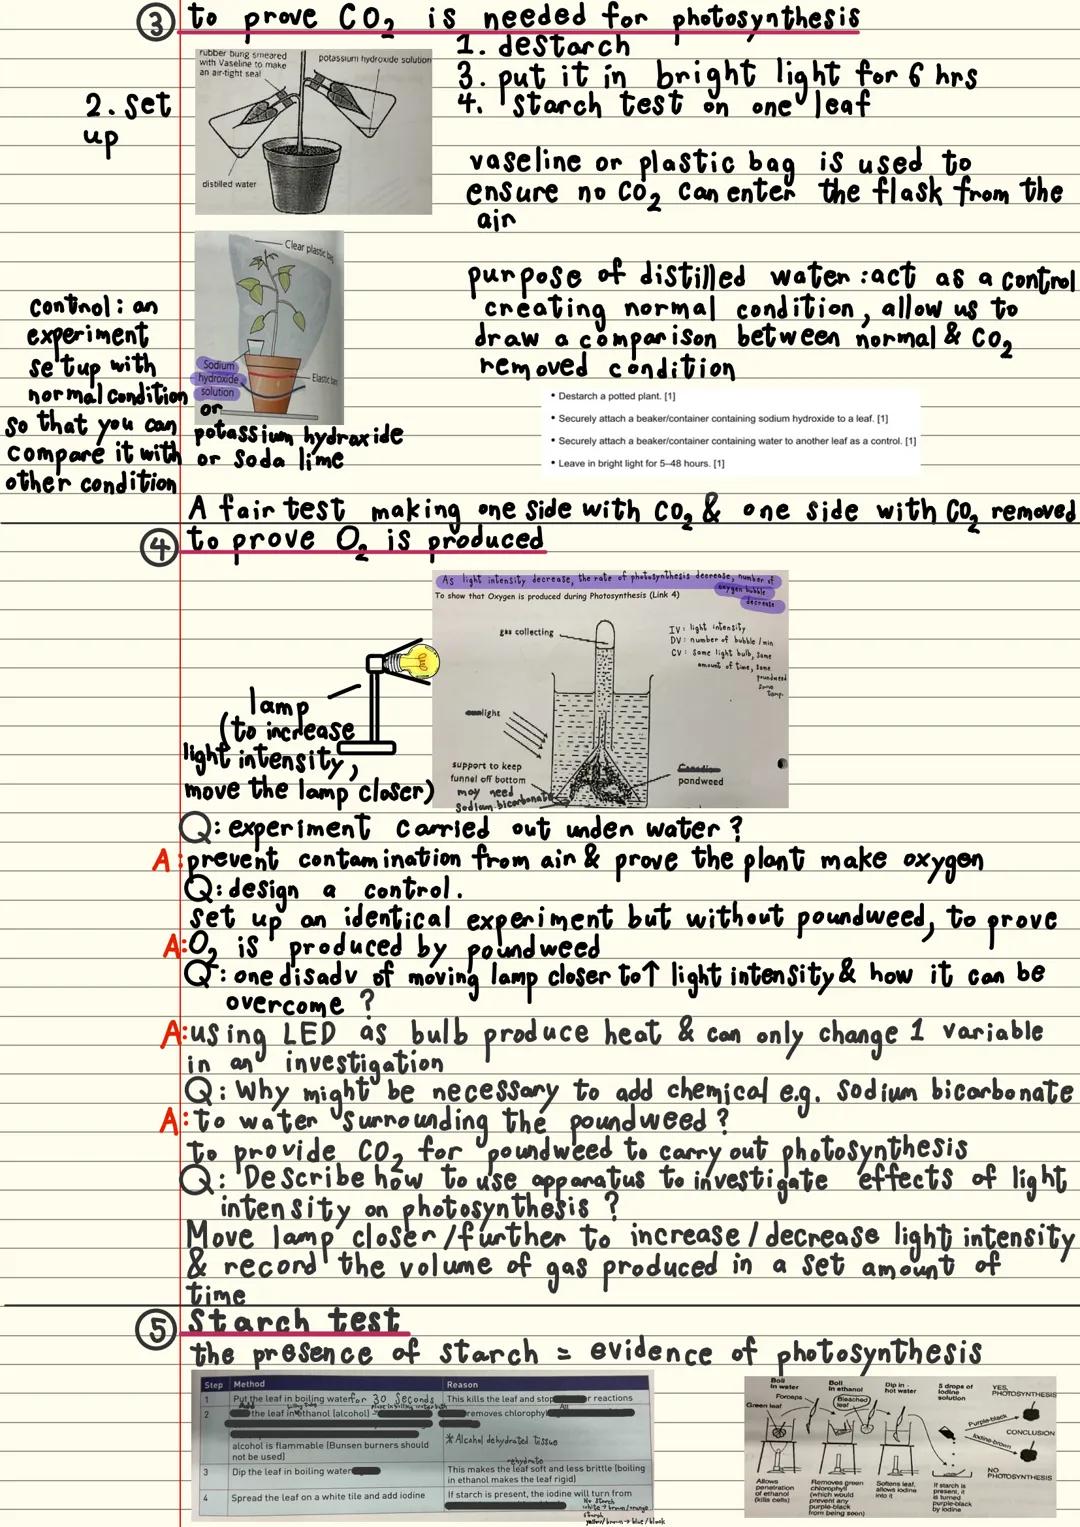 ③ to prove CO₂ is needed for photosynthesis
1. destarch
2. set up
3. put it in bright light for 6 hrs
4. starch test on one leaf
rubber bung smeared
with Vaseline to make
an air-tight seal
potassium hydroxide solution
distilled water
vaseline or plastic bag is used to
ensure no CO₂ can enter the flask from the
air
Clear plastic bag
Sodium
hydroxide
solution
Elastic
or
potassium hydroxide
or soda lime
purpose of distilled water : act as a control
creating normal condition, allow us to
draw a comparison between normal & CO₂
removed condition
control : an
experiment
setup with
normal condition
so that you can
compare it with
other condition
• Destarch a potted plant. [1]
• Securely attach a beaker/container containing sodium hydroxide to a leaf. [1]
• Securely attach a beaker/container containing water to another leaf as a control. [1]
• Leave in bright light for 5–48 hours. [1]
A fair test making one side with CO₂ & one side with CO₂ removed
④ to prove O₂ is produced
As light intensity decrease, the rate of photosynthesis decrease, number of
oxygen bubble
decrease
To show that Oxygen is produced during Photosynthesis (Link 4)
gas collecting
IV : light intensity
DV : number of bubble / min
CV : same light bulb, same
amount of time, same
poundweed
same
temp.
light
support to keep
funnel off bottom
may need
sodium bicarbonate
Canadian
pondweed
lamp
(to increase
light intensity,
move the lamp closer)
Q: experiment carried out under water ?
A: prevent contamination from air & prove the plant make oxygen
Q: design a control.
set up an identical experiment but without poundweed, to prove
A: O₂ is produced by poundweed
Q: one disadv of moving lamp closer to ↑ light intensity & how it can be
overcome ?
A: using LED as bulb produce heat & can only change 1 variable
in an investigation
Q: Why might be necessary to add chemical e.g. sodium bicarbonate
A: to water surrounding the poundweed ?
to provide CO₂ for poundweed to carry out photosynthesis
Q: Describe how to use apparatus to investigate effects of light
intensity on photosynthesis ?
Move lamp closer / further to increase / decrease light intensity
& record the volume of gas produced in a set amount of
time
⑤ Starch test
the presence of starch = evidence of photosynthesis
Step Method Reason
1 Put the leaf in boiling water for 30 seconds This kills the leaf and stop r reactions
2 Add the leaf in ethanol (alcohol) removes chlorophyl
alcohol is flammable (Bunsen burners should
not be used)
* Alcohol dehydrated tissue
3 Dip the leaf in boiling water
rehydrate
This makes the leaf soft and less brittle (boiling
in ethanol makes the leaf rigid)
4 Spread the leaf on a white tile and add iodine If starch is present, the iodine will turn from
No starch
white → brown/orange
starch
yellow/brown → blue/black
Boil
in water
Boil
in ethanol
Dip in
hot water
5 drops of
Iodine
solution
YES,
PHOTOSYNTHESIS
Forceps
Green leaf
Bleached
leaf
Purple-black
Iodine-brown
CONCLUSION
NO
PHOTOSYNTHESIS
Allows
penetration
of ethanol
(kills cells)
Removes green
chlorophyll
(which would
prevent any
purple-black
from being seen)
Softens leaf,
allows iodine
into it
If starch is
present, it
is turned
purple-black
by iodine